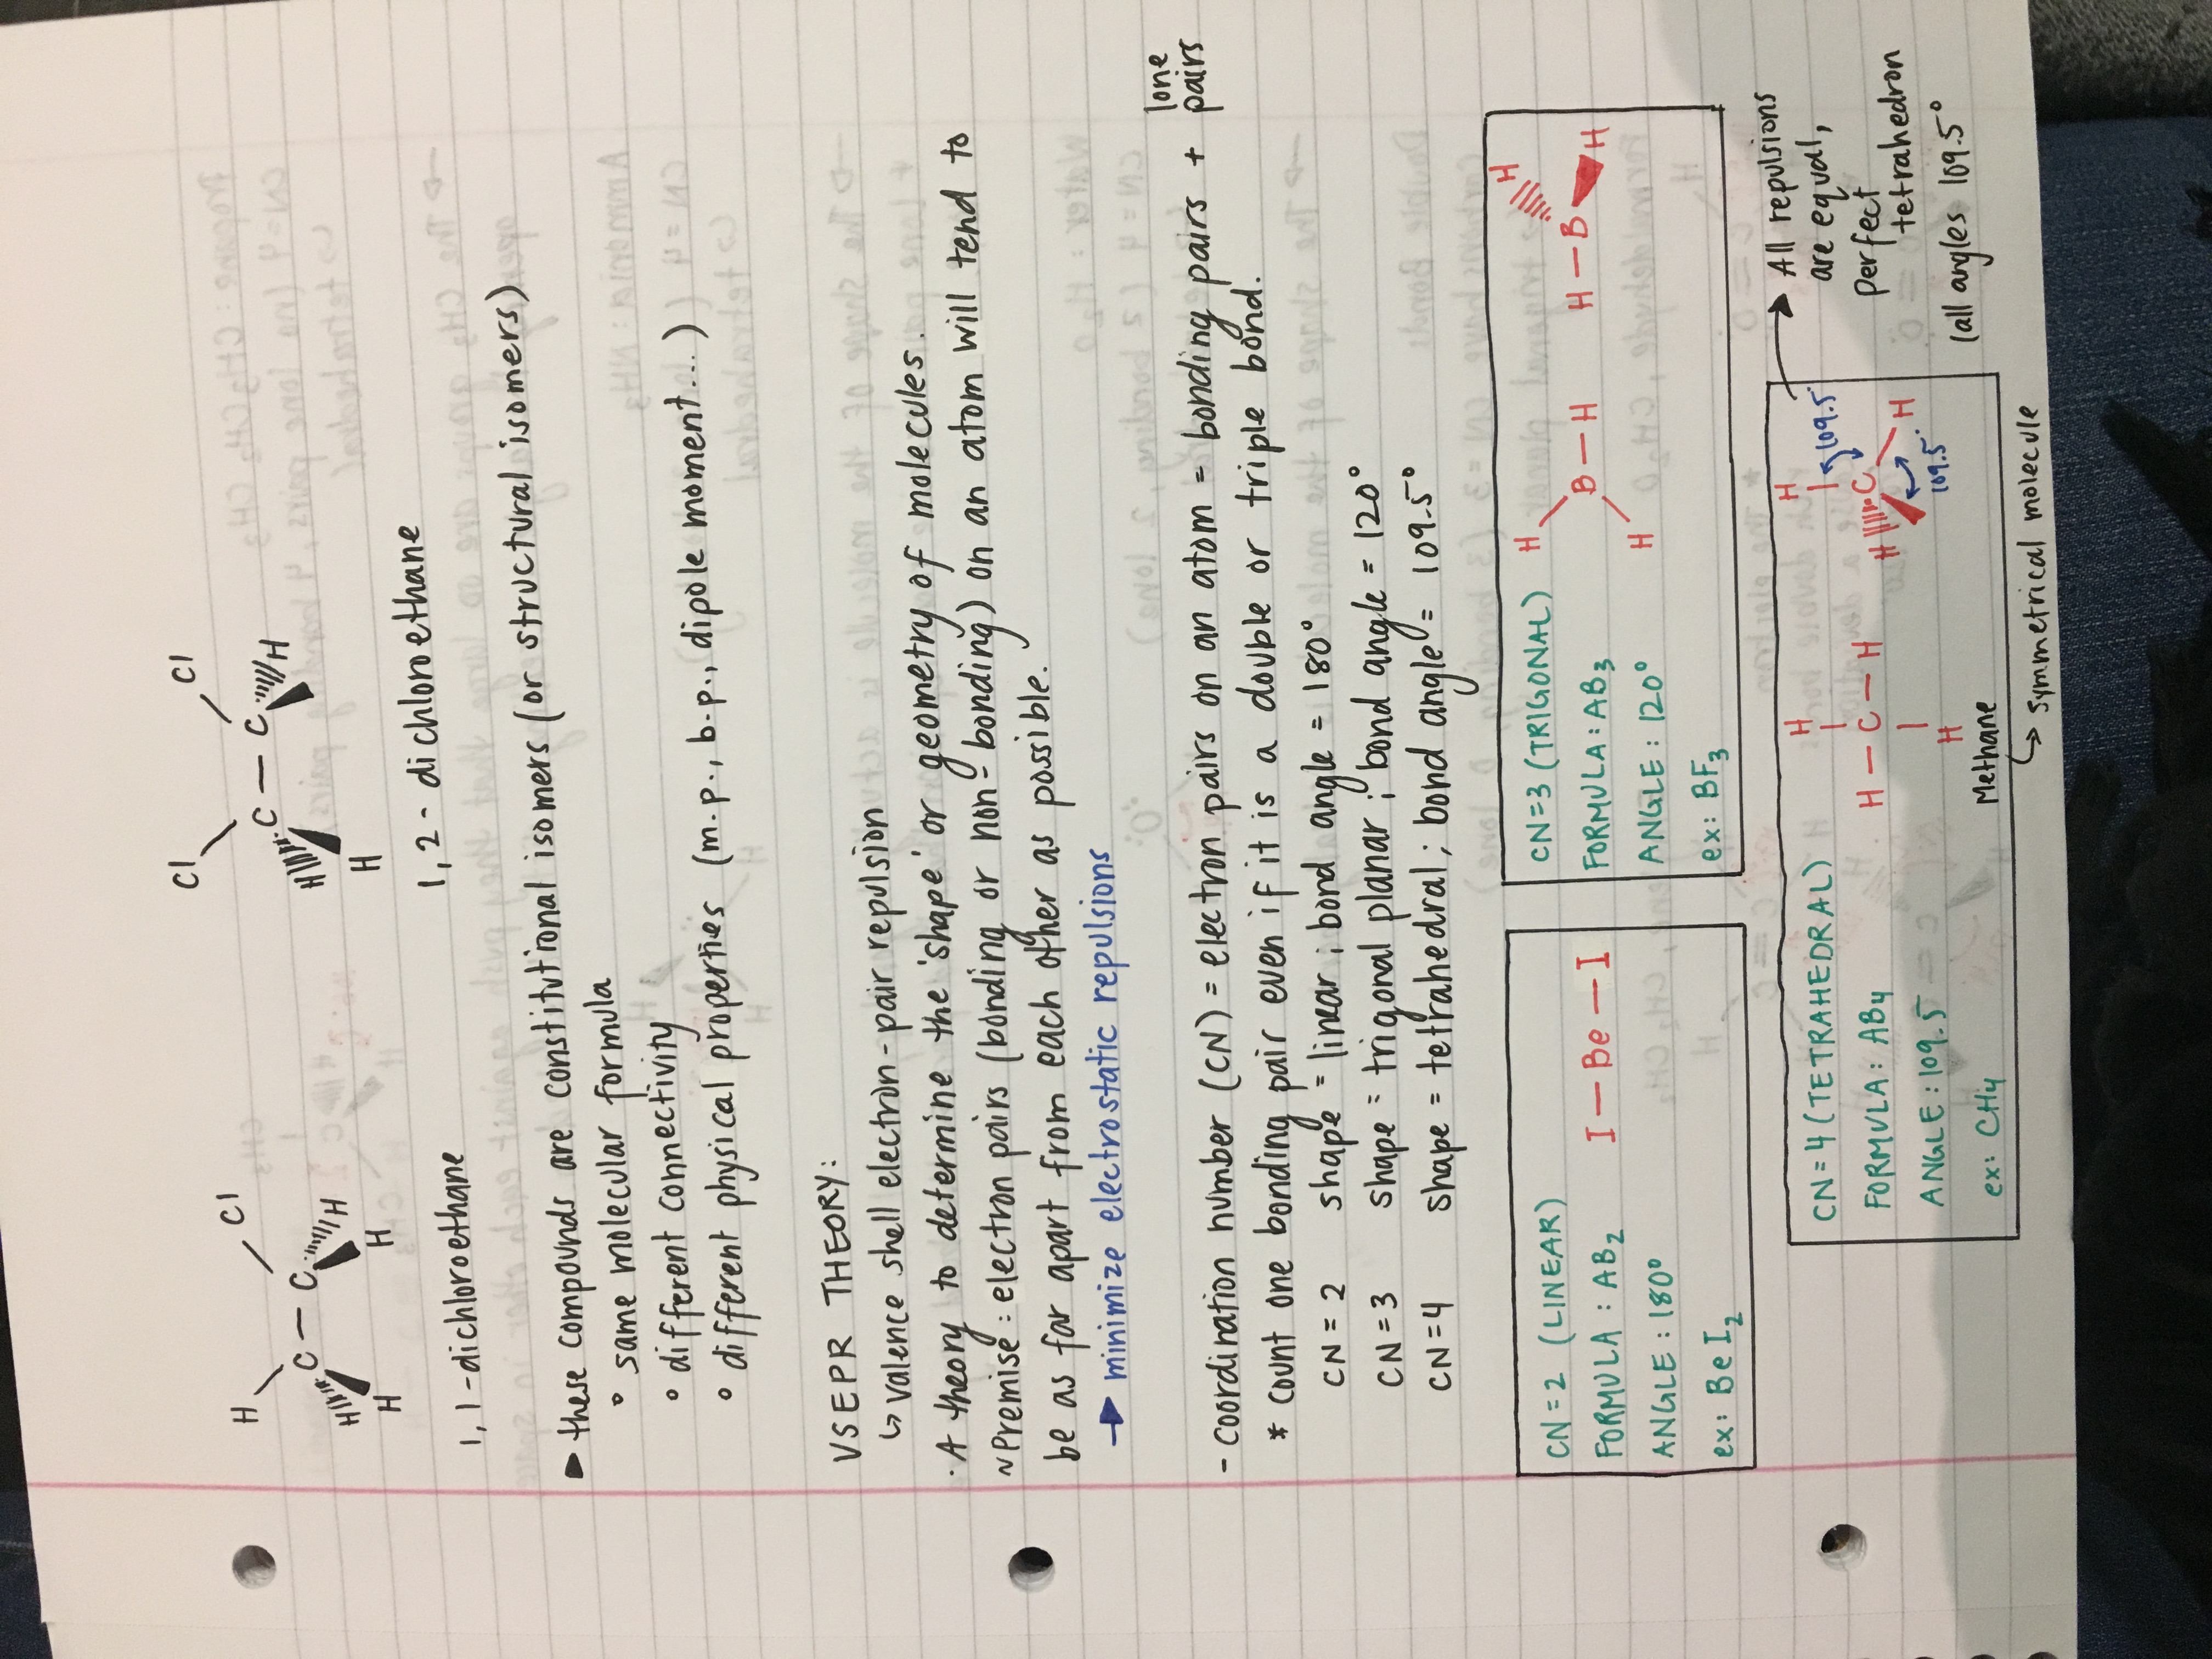 H Cl Cl Cl
C — C C — C
H H H H
H H H
1,1-dichloroethane 1,2-dichloroethane
these compounds are constitutional isomers (or structural isomers)
° same molecular formula
° different connectivity
° different physical properties (m.p., b.p., dipole moment...)
VSEPR THEORY:
↳ valence shell electron-pair repulsion
· A theory to determine the 'shape' or geometry of molecules.
~Premise: electron pairs (bonding or non-bonding) on an atom will tend to
be as far apart from each other as possible.
→ minimize electrostatic repulsions
- Coordination number (CN) = electron pairs on an atom = bonding pairs + lone pairs
* count one bonding pair even if it is a double or triple bond.
CN = 2 shape = linear ; bond angle = 180°
CN = 3 shape = trigonal planar ; bond angle = 120°
CN = 4 shape = tetrahedral ; bond angle = 109.5°
CN = 2 (LINEAR)
FORMULA : AB2
ANGLE : 180°
ex: BeI2
I — Be — I
CN = 3 (TRIGONAL)
FORMULA : AB3
ANGLE : 120°
ex: BF3
H
B — H
H
H
H — B
H
CN = 4 (TETRAHEDRAL)
FORMULA : AB4
ANGLE : 109.5
ex: CH4
H
H — C — H
H
Methane
↳ symmetrical molecule
H
109.5°
C
H H
109.5°
→ All repulsions
are equal,
perfect
tetrahedron
(all angles 109.5°